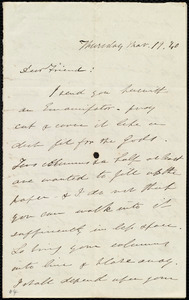 Thursday Mar. 19. 40
Dear Friend:
I send you herewith
an Emancipator - pray
eat & cover it like an
dish fit for the Gods.
Two columns & a half at last
are wanted to fill up the
paper, & I do not think
you can walk into it
sufficiently in less space.
So bring your columns
into line & blaze away.
I shall depend upon your